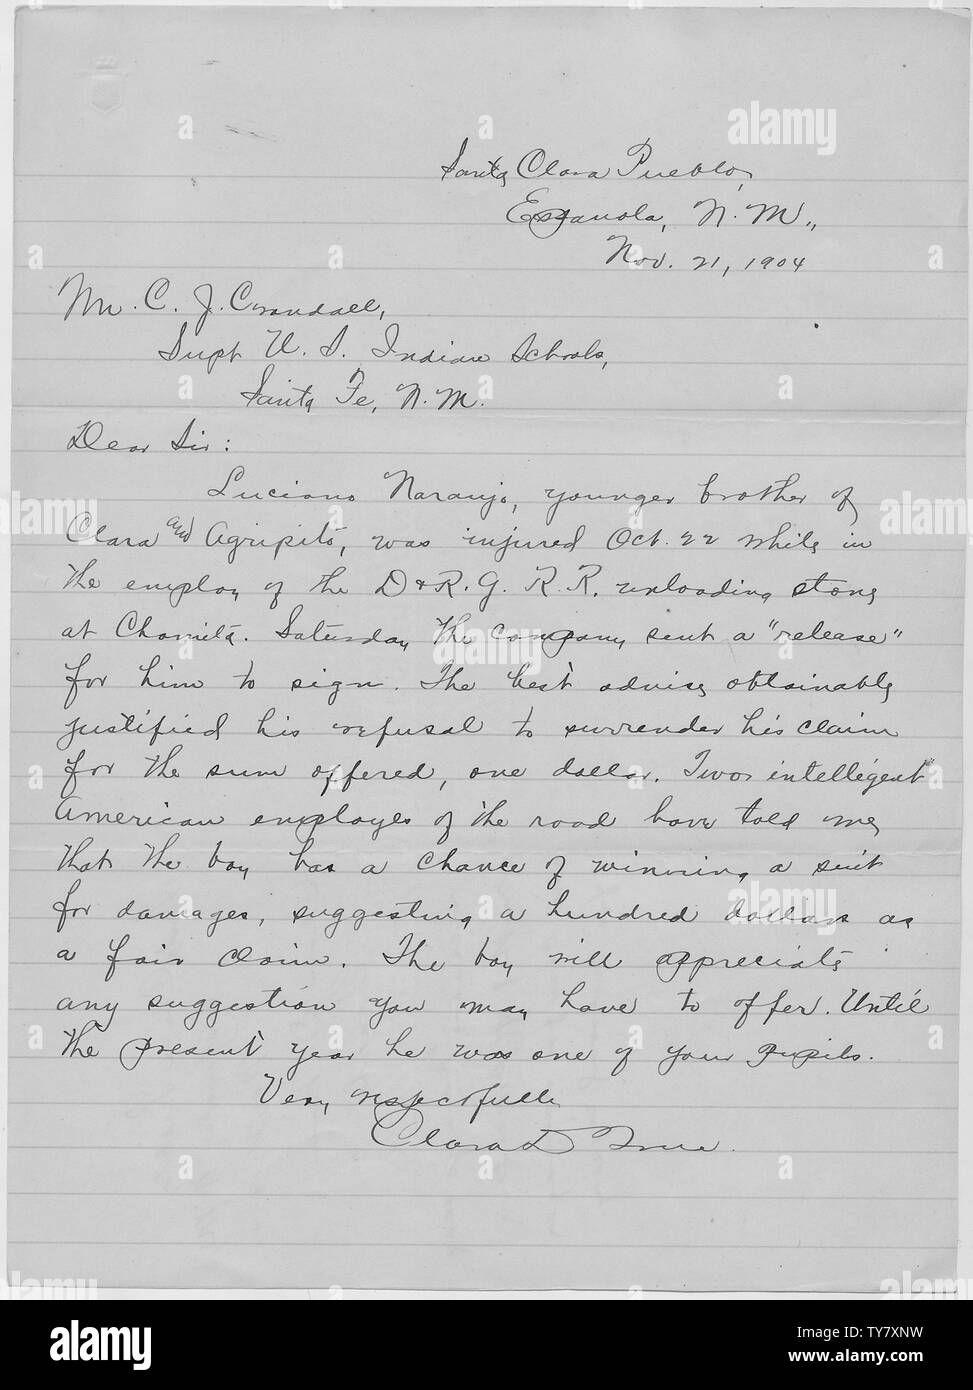 Santa Clara Pueblo,
Espanola, N. M.,
Nov. 21, 1904
Mr. C. J. Crandall,
Supt U. S. Indian Schools,
Santa Fe, N. M.
Dear Sir:
Luciano Naranjo, younger brother of
Clara and Agripito, was injured Oct. 22 while in
the employ of the D & R. G. R. R. unloading stone
at Chamita. Saturday the company sent a "release"
for him to sign. The best advise obtainable
justified his refusal to surrender his claim
for the sum offered, one dollar. Two intelligent
American employes of the road have told me
that the boy has a chance of winning a suit
for damages, suggesting a hundred dollars as
a fair claim. The boy will appreciate
any suggestion you may have to offer. Until
the present year he was one of your pupils.
Very respectfully
Clara D True.
alamy
Image ID: TY7XNW
www.alamy.com